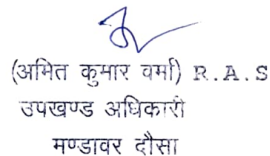 (अमित कुमार वर्मा) R.A.S
उपखण्ड अधिकारी
मण्डावर दौसा